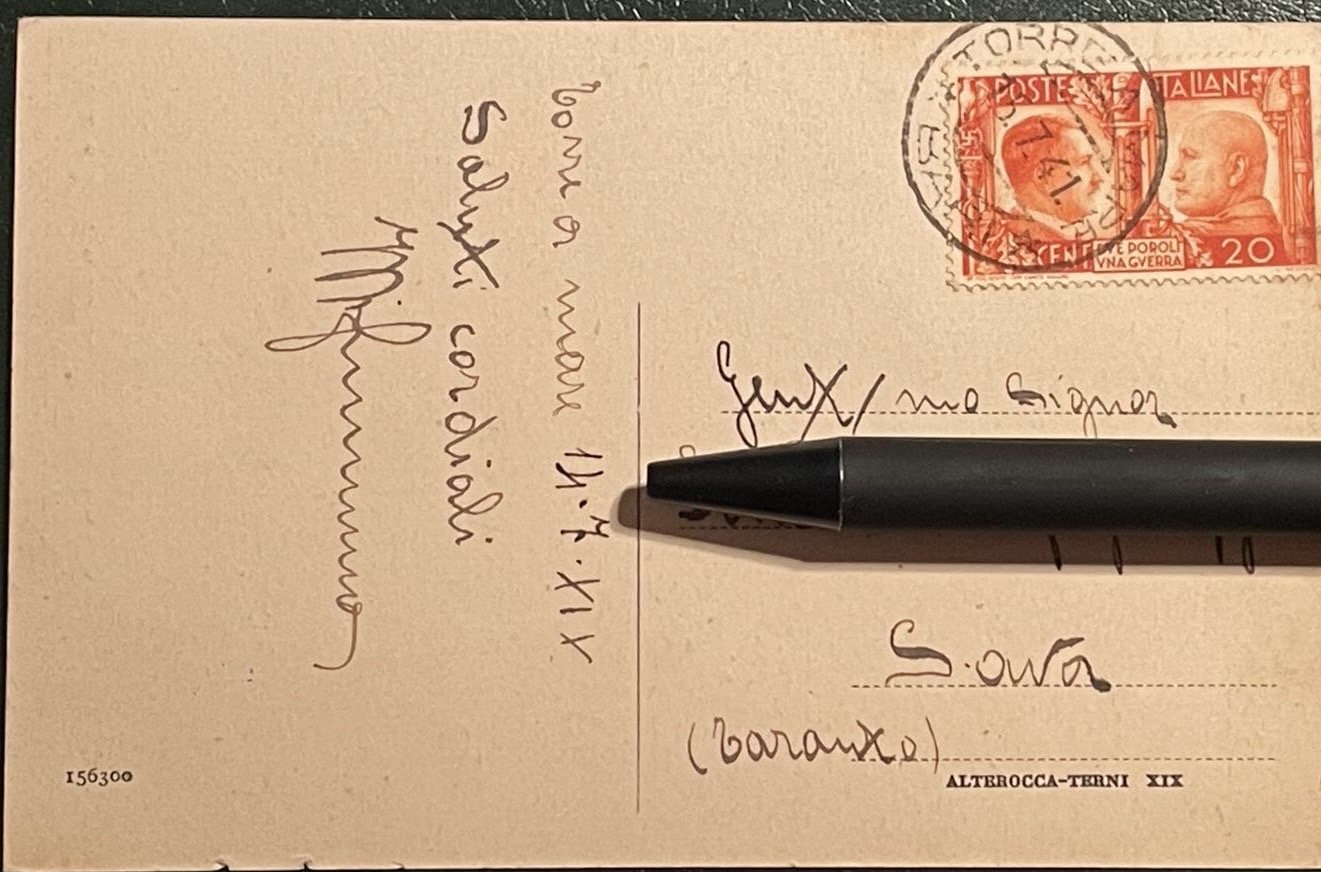 Torre a mare 14.7.XIX
Saluti cordiali
POSTE ITALIANE
CENT 20
DVE POPOLI
VNA GVERRA
TORRE A MARE
7.41.
BARI
Gent/mo Signor
Sava
(Taranto)
156300
ALTEROCCA-TERNI XIX